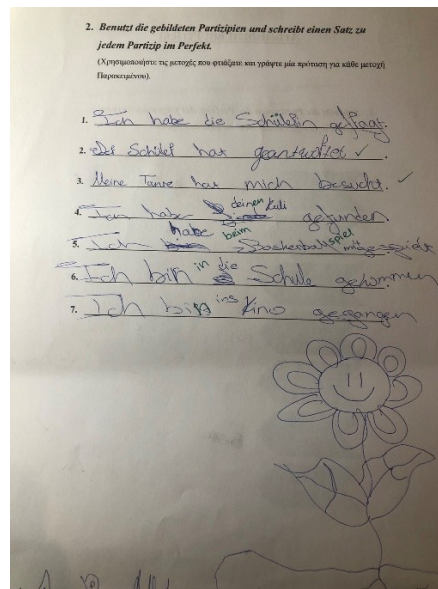 2. Benutzt die gebildeten Partizipien und schreibt einen Satz zu
jedem Partizip im Perfekt.
(Χρησιμοποιήστε τις μετοχές που φτιάξατε και γράψτε μία πρόταση για κάθε μετοχή
Παρακειμένου).
1. Ich habe die Schülerin gefragt.
2. Der Schüler hat geantwortet ✓
3. Meine Tante hat mich besucht. ✓
4. Ich habe deinen Kuli gefunden.
5. Ich habe beim Basketballspiel mitgespielt
6. Ich bin in die Schule gekommen
7. Ich bin ins Kino gegangen